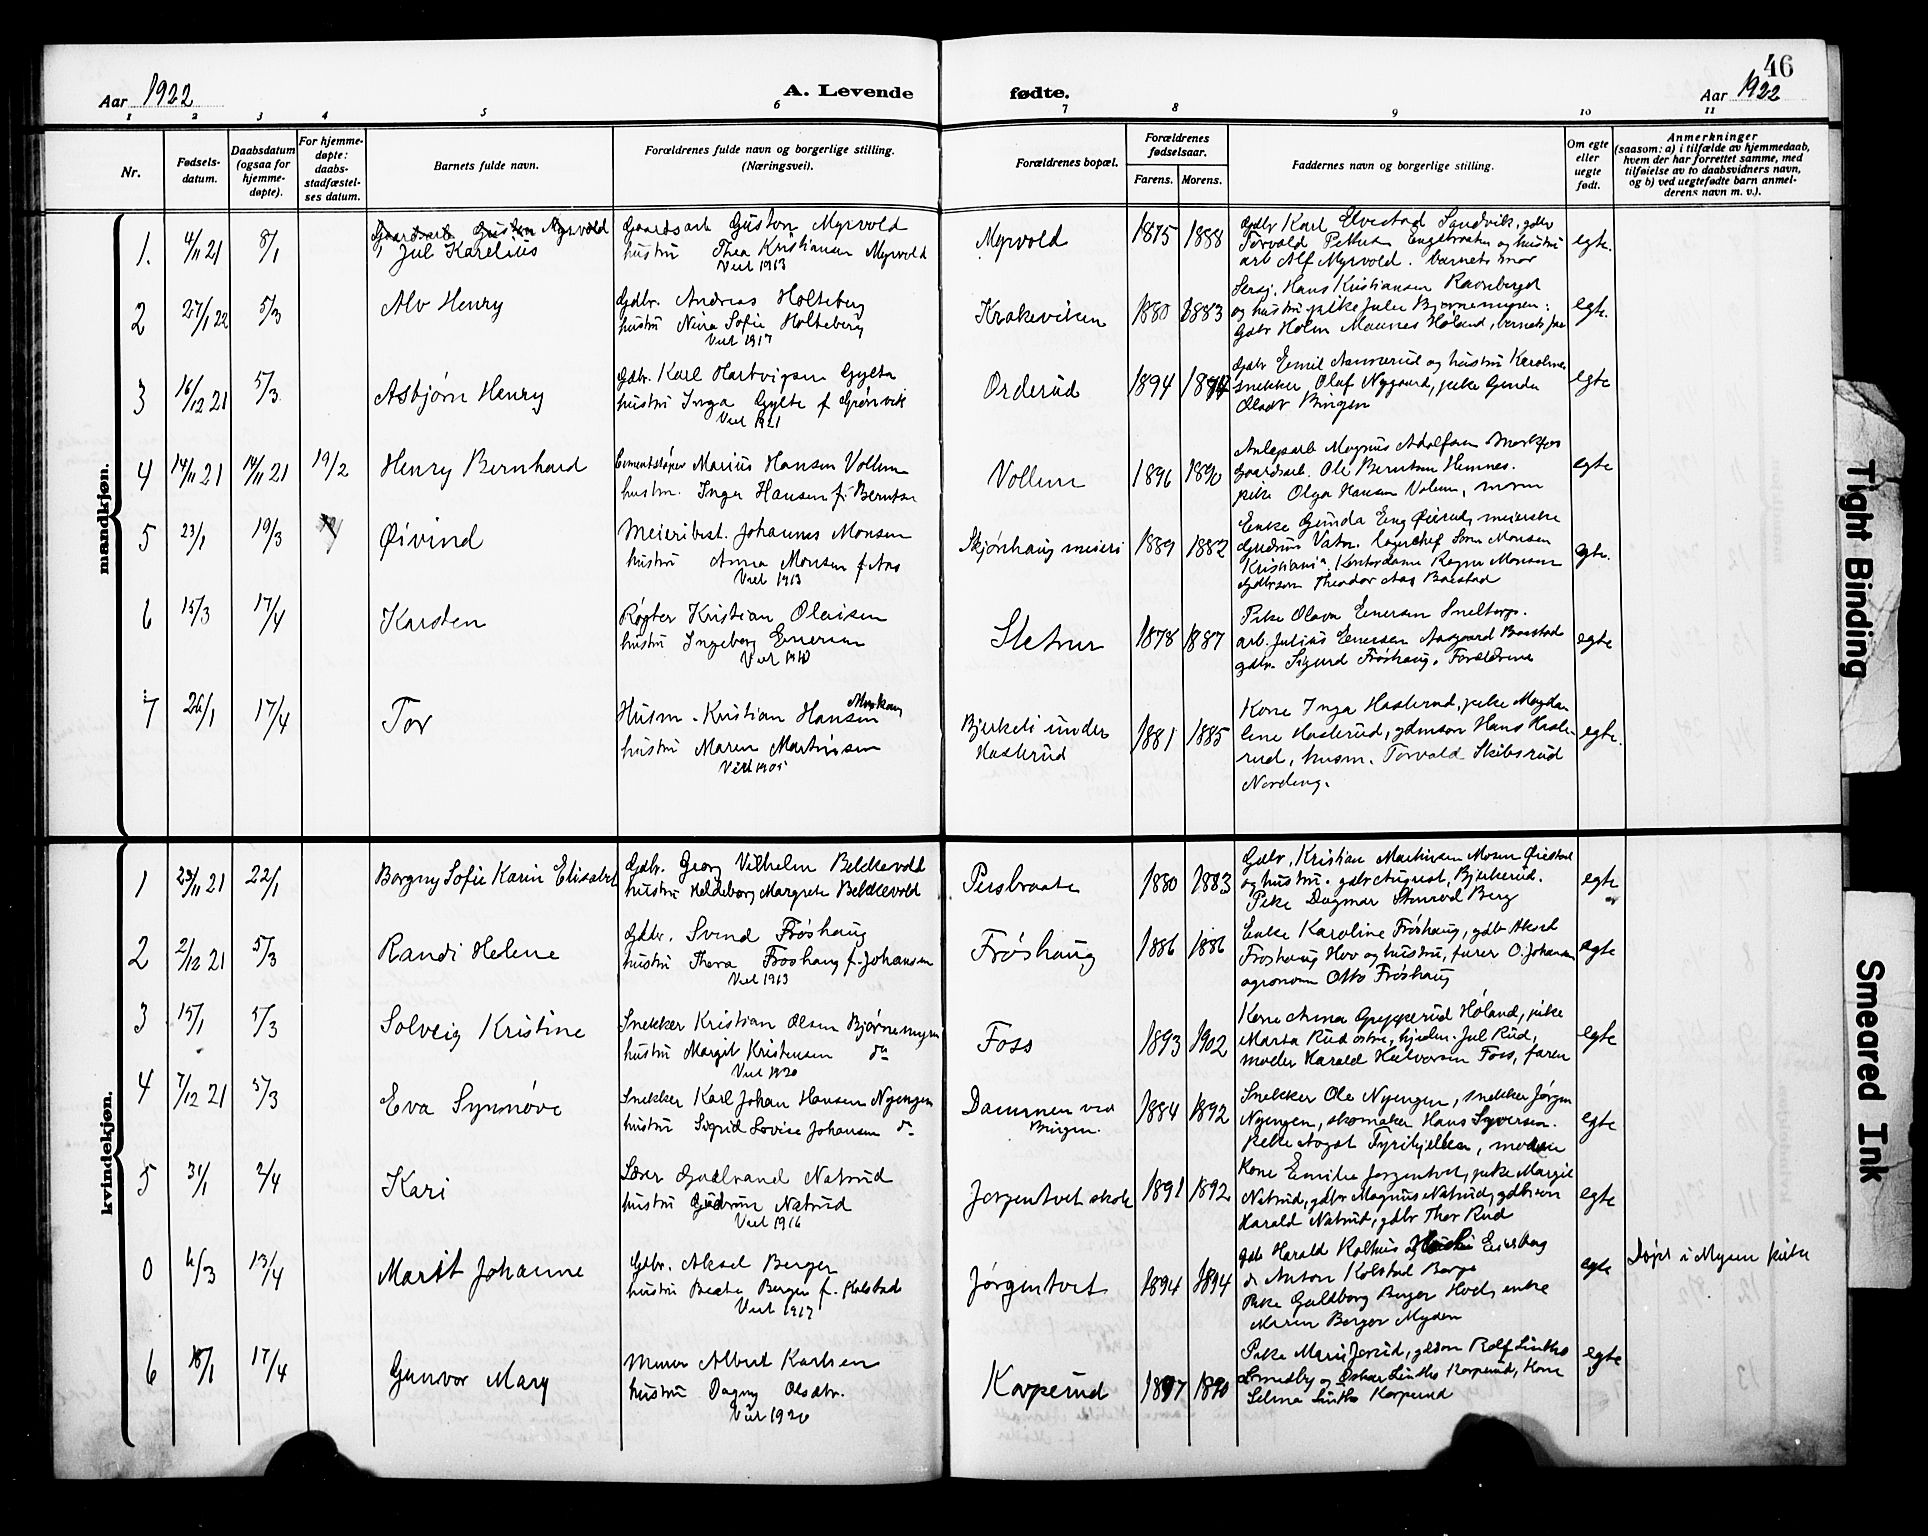 46
Aar 1922
A. Levende
fødte.
Aar 1922
1 2 3 4 5 6 7 8 9 10 11
Nr.
Fødsels-
datum.
Daabsdatum
(ogsaa for
hjemme-
døpte).
For hjemme-
døpte:
daabs-
stadfæstel-
ses datum.
Barnets fulde navn.
Forældrenes fulde navn og borgerlige stilling.
(Næringsvei).
Forældrenes bopæl.
Forældrenes
fødselsaar.
Farens. Morens.
Faddernes navn og borgerlige stilling.
Om egte
eller
uegte
født.
Anmerkninger
(saasom: a) i tilfælde av hjemmedaab,
hvem der har forrettet samme, med
tilføielse av to daabsvidners navn,
og b) ved uegtefødte barn anmel-
derens navn m. v.).
mandkjøn.
1. 4/11 21 8/1
Jul Karelius
Gaardsarb Gustav Myrvold
hustru Thea Kristiansen Myrvold
Viet 1913
Myrvold 1875 1888
Gdbr Karl Elvestad Sandvik, gdbr
Torvald Pettersen Engebraaten og hustru
arb Alf Myrvold. barnets mor
egte.
2 27/1 22 5/3
Alv Henry
Gdbr. Andreas Holteberg
hustru Nina Sofie Holteberg
Viet 1917
Krakeviken 1880 1883
Sersj. Hans Kristiansen Ravneberget
og hustru, pike Julie Bjørnemyren:
Gdbr Holm Maunes Høland, barnets far
egte.
3 16/12 21 5/3
Asbjørn Henry
Gdbr. Karl Hartvigsen Gylta
hustru Inga Gylte f Grønvik
Viet 1921
Orderud 1894
Gdbr Emil Aamærud og hustru Karoline
snekker Olaf Nygaard, pike Gunda
Bingen
egte
4 14/11 21 14/11 21 19/2
Henry Bernhard
Cementstøper Marius Hansen Vollum
hustru. Inga Hansen f. Berntsen
Vollum 1896 1890
Anlegsarb Magnus Adolfsen
Gaardsarb. Ole Berntsen Hemnes.
pike Olga Hansen Volum, moren
egte
5 23/1 19/3
Øivind
Meieribest. Johannes Monsen
hustru Anna Monsen f Aas
Viet 1913
Skjønhaug meieri 1889 1882
Enke Gunda Eng Øierud, meierske
Gudrun Vatn. lagerchef Sven Monsen
Kristiania Kontordame Ragna Monsen
Gdbrsøn Theodor Aas Baastad
egte.
6 15/3 17/4
Karsten
Røgter Kristian Olaisen
hustru Ingeborg Enersen
Viet 1910
Sletner 1878 1887
Pike Olava Enersen Sneltorp.
arb. Julius Enersen Aasgaard Baastad
gdbr. Sigurd Frøshaug. Forældrene
egte
7 26/1 17/4
Tor
Husm. Kristian Hansen
hustru Maren Martinsen
Viet 1905
Bjerkeli under
Haslerud
1881 1885
Kone Inga Haslerud, pike Magda-
lene Haslerud, gdmsøn Hans Hasle-
rud, husm. Torvald Skibsrud
Nordeng.
egte.
kvindekjøn.
1 23/11 21 22/1
Borgny Sofie Karin Elisabet
Gdbr. Georg Vilhelm Bekkevold
hustru Heldeborg Margrete Bekkevold
Pusbraate 1880 1883
Gdbr. Kristian Martinsen Mosen Øiestad
og hustru. gdbr August, Bjerkerud.
Pike Dagmar Stenrød Berg
egte
2 2/12 21 5/3
Randi Helene
Gdbr. Svend Frøshaug
hustru Thora Frøshaug f. Johansen
Viet 1913
Frøshaug 1886 1886
Enke Karoline Frøshaug, gdbr Aksel
Frøshaug Hov og hustru, furer O. Johansen
agronom Otto Frøshaug
egte
3 15/1 5/3
Solveig Kristine
Snekker Kristian Olsen Bjørnemyren
hustru Margit Kristensen do
Viet 1920
Foss 1893 1902
Kone Anna Grepperud Høland, pike
Marta Rud østre, hjulm. Jul Rud,
møller Harald Halvorsen Foss, faren
egte
4 7/12 21 5/3
Eva Synnøve
Snekker Karl Johan Hansen Nyengen
hustru Sigrid Lovise Johansen do
Dammen ved
Bingen.
1884 1892
Snekker Ole Nyengen, snekker Jørgen
Nyengen, skomaker Hans Syversen.
Pike Aagot Fyrihjellsen, moderen
egte
5 31/1 2/4
Kari
Lærer Gudbrand Natrud
hustru Gudrun Natrud
Viet 1916
Jørgentvet skole 1891 1892
Kone Emilie Jørgentvet, pike Margit
Natrud, gdbr Magnus Natrud, gdbrsøn
Harald Natrud, gdbr Thor Rud
egte
0 6/3 13/4
Marit Johanne
Gdbr. Aksel Berger
hustru Beate Berger f. Kolstad
Viet 1917
Jørgentvet 1894 1894
Gdb Harald Kolhus og Eidsberg
do Anton Kolstad Berge
Pike Guldborg Berger Hod, enke
Maren Berger Mysen
egte
Døpt i Mysen kirke
6 18/1 17/4
Gunvor Mary
Murer Albert Karlsen
hustru Dagny Olsdtr.
Viet 1920
Korperud 1897 1890
Pike Marie Jerud, gdson Rolf Lintho
Smedby og Oskar Lintho Korperud, Kone
Selma Lintho Korperud
egte
Tight Binding
Smeared Ink